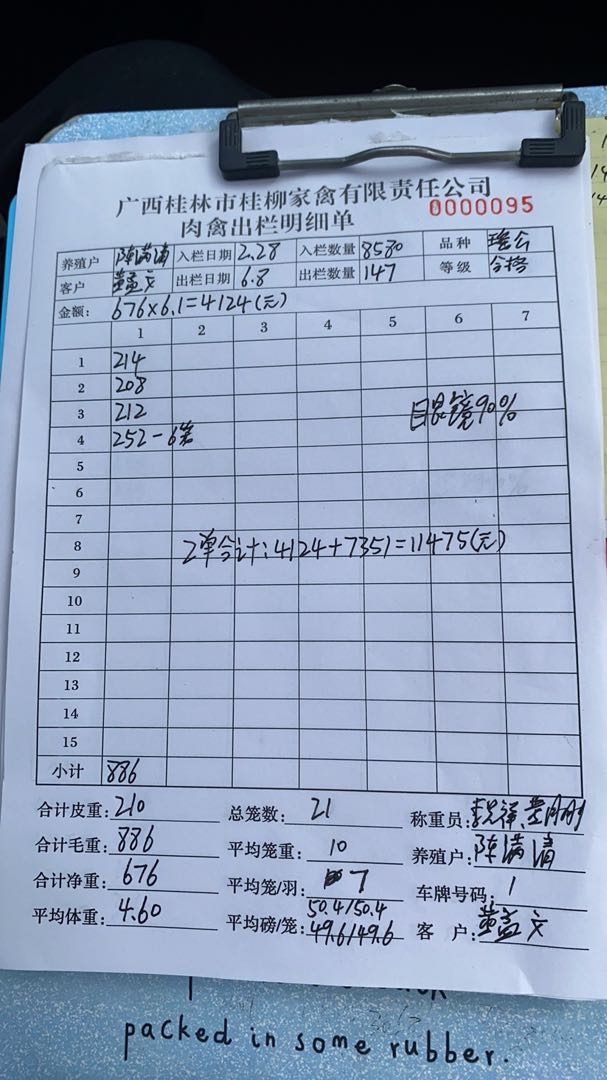 广西桂林市桂柳家禽有限责任公司
肉禽出栏明细单 0000095
养殖户 陈满清 入栏日期 2.28 入栏数量 8580 品种 瑶
客户 黄孟文 出栏日期 6.8 出栏数量 147 等级 合格
金额: 676×6.1=4124(元)
1 2 3 4 5 6 7
1 214
2 208
3 212 目眼镜90%
4 252-6笼
5
6
7
8 2单合计:4124+7351=11475(元)
9
10
11
12
13
14
15
小计 886
合计皮重: 210 总笼数: 21 称重员:
合计毛重: 886 平均笼重: 10 养殖户: 陈满清
合计净重: 676 平均笼/羽: 7 车牌号码: 1
平均体重: 4.60 平均磅/笼: 50.4/50.4 49.6/49.6 客户: 黄孟文
packed in some rubber.